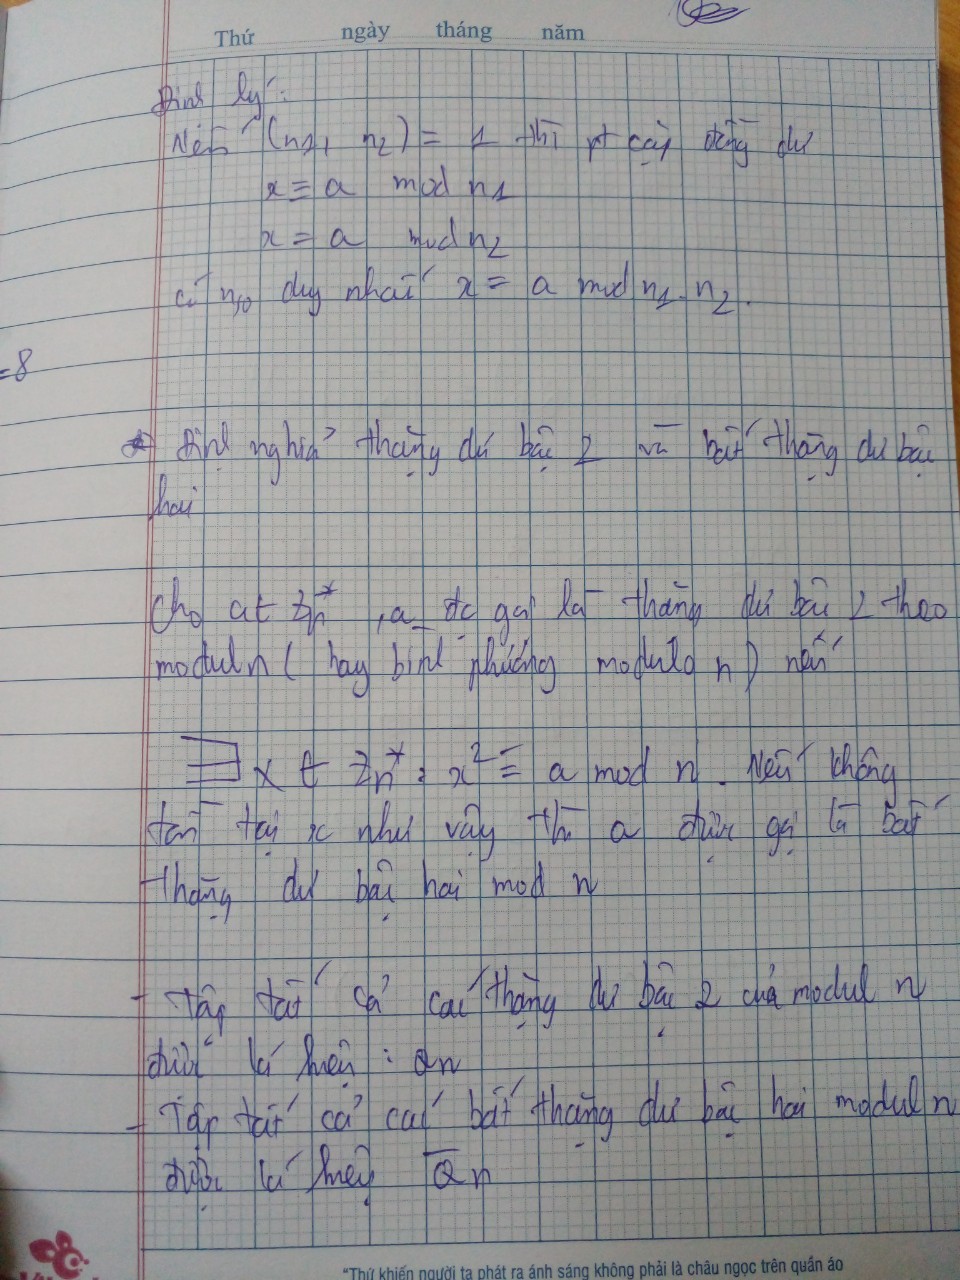 Thứ ngày tháng năm
Định lý:
Nếu (n1, n2) = 1 thì pt cặp đồng dư
x ≡ a mod n1
x ≡ a mod n2
có n_o duy nhất x ≡ a mod n1.n2.
=8
Định nghĩa thặng dư bậc 2 và bất thặng dư bậc
hai
Cho a ∈ Zn*, a đc gọi là thặng dư bậc 2 theo
modul n (hay bình phương modulo n) nếu
∃ x ∈ Zn*: x² ≡ a mod n. Nếu không
tồn tại x như vậy thì a được gọi là bất
thặng dư bậc hai mod n
- Tập tất cả các thặng dư bậc 2 của modul n
được kí hiệu: Qn
- Tập tất cả các bất thặng dư bậc hai modul n
được kí hiệu Q̅n
"Thứ khiến người ta phát ra ánh sáng không phải là châu ngọc trên quần áo